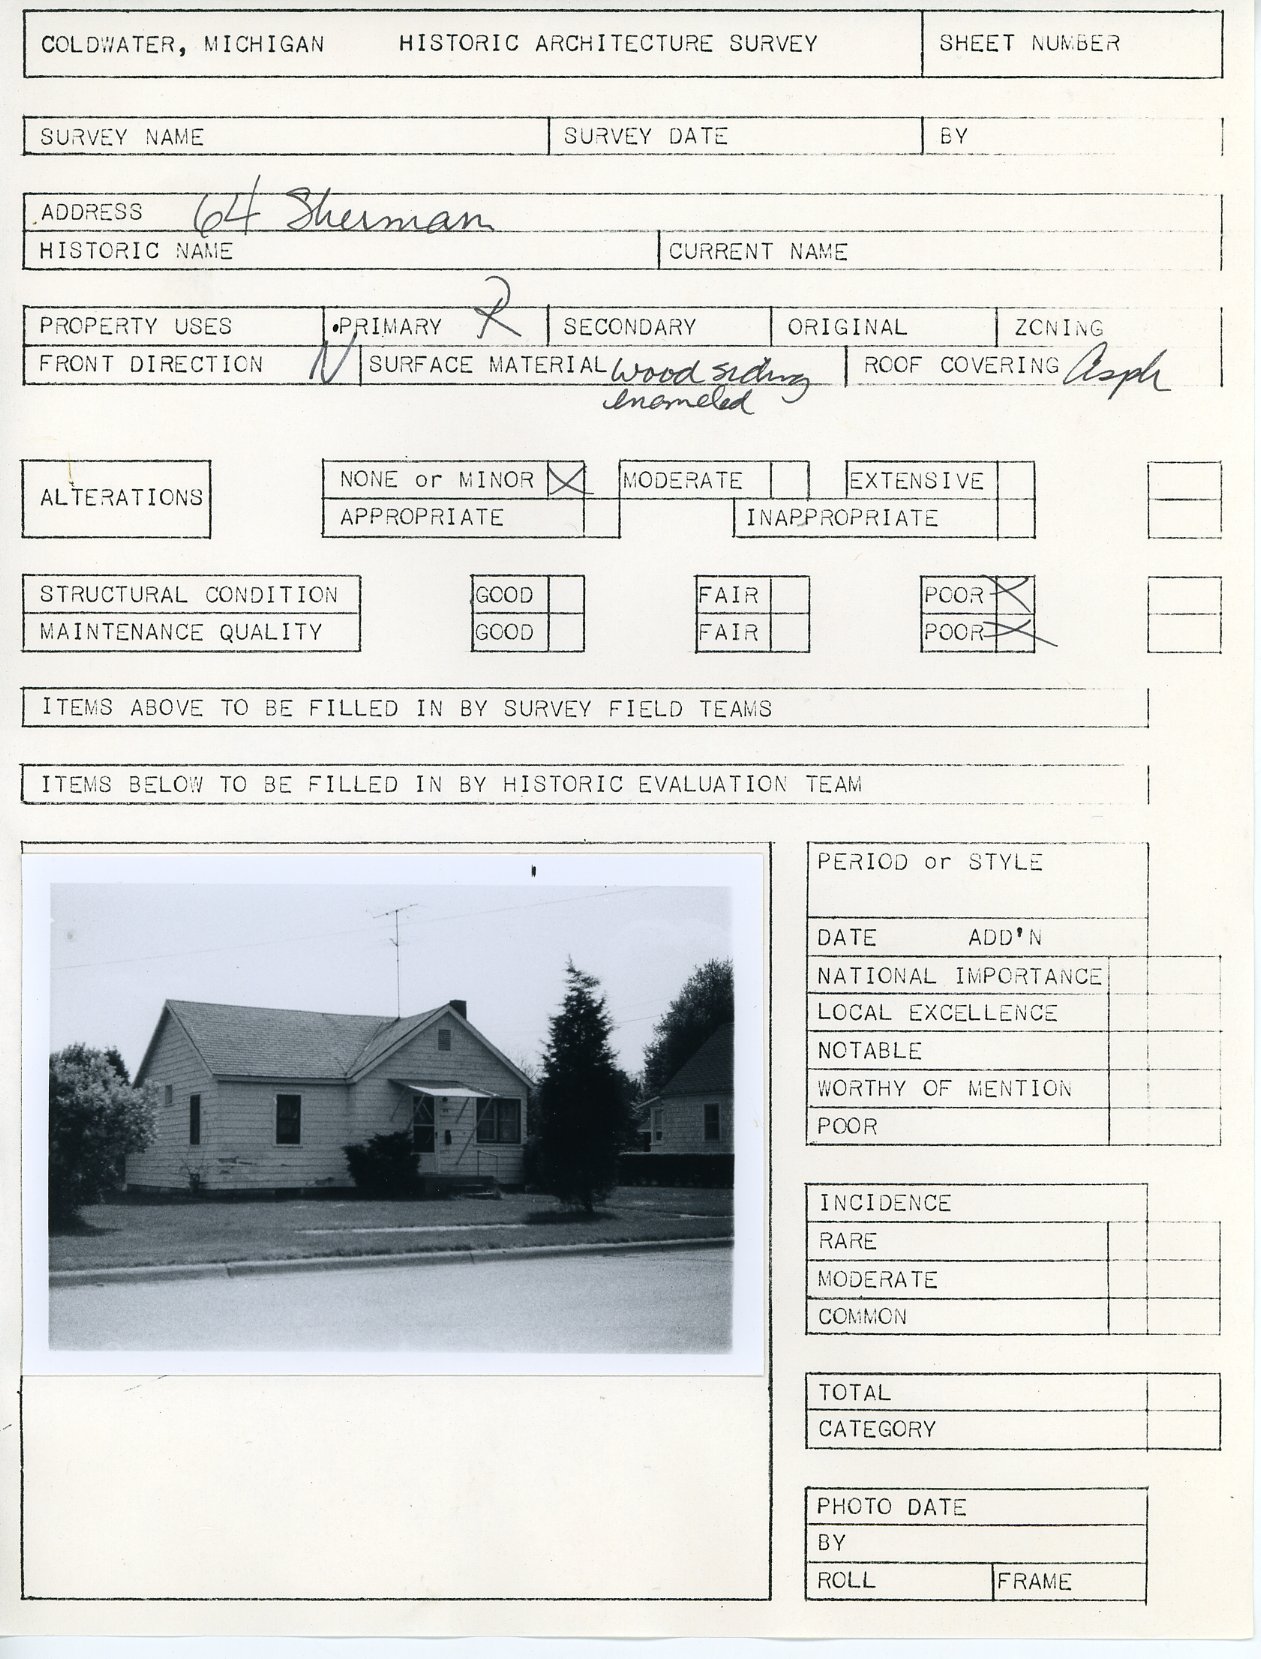 COLDWATER, MICHIGAN HISTORIC ARCHITECTURE SURVEY SHEET NUMBER
SURVEY NAME SURVEY DATE BY
ADDRESS 64 Sherman
HISTORIC NAME CURRENT NAME
PROPERTY USES PRIMARY R SECONDARY ORIGINAL ZONING
FRONT DIRECTION N SURFACE MATERIAL wood siding ROOF COVERING Asph
enameled
ALTERATIONS
NONE or MINOR X MODERATE EXTENSIVE
APPROPRIATE INAPPROPRIATE
STRUCTURAL CONDITION GOOD FAIR POOR X
MAINTENANCE QUALITY GOOD FAIR POOR X
ITEMS ABOVE TO BE FILLED IN BY SURVEY FIELD TEAMS
ITEMS BELOW TO BE FILLED IN BY HISTORIC EVALUATION TEAM
PERIOD or STYLE
DATE ADD'N
NATIONAL IMPORTANCE
LOCAL EXCELLENCE
NOTABLE
WORTHY OF MENTION
POOR
INCIDENCE
RARE
MODERATE
COMMON
TOTAL
CATEGORY
PHOTO DATE
BY
ROLL FRAME